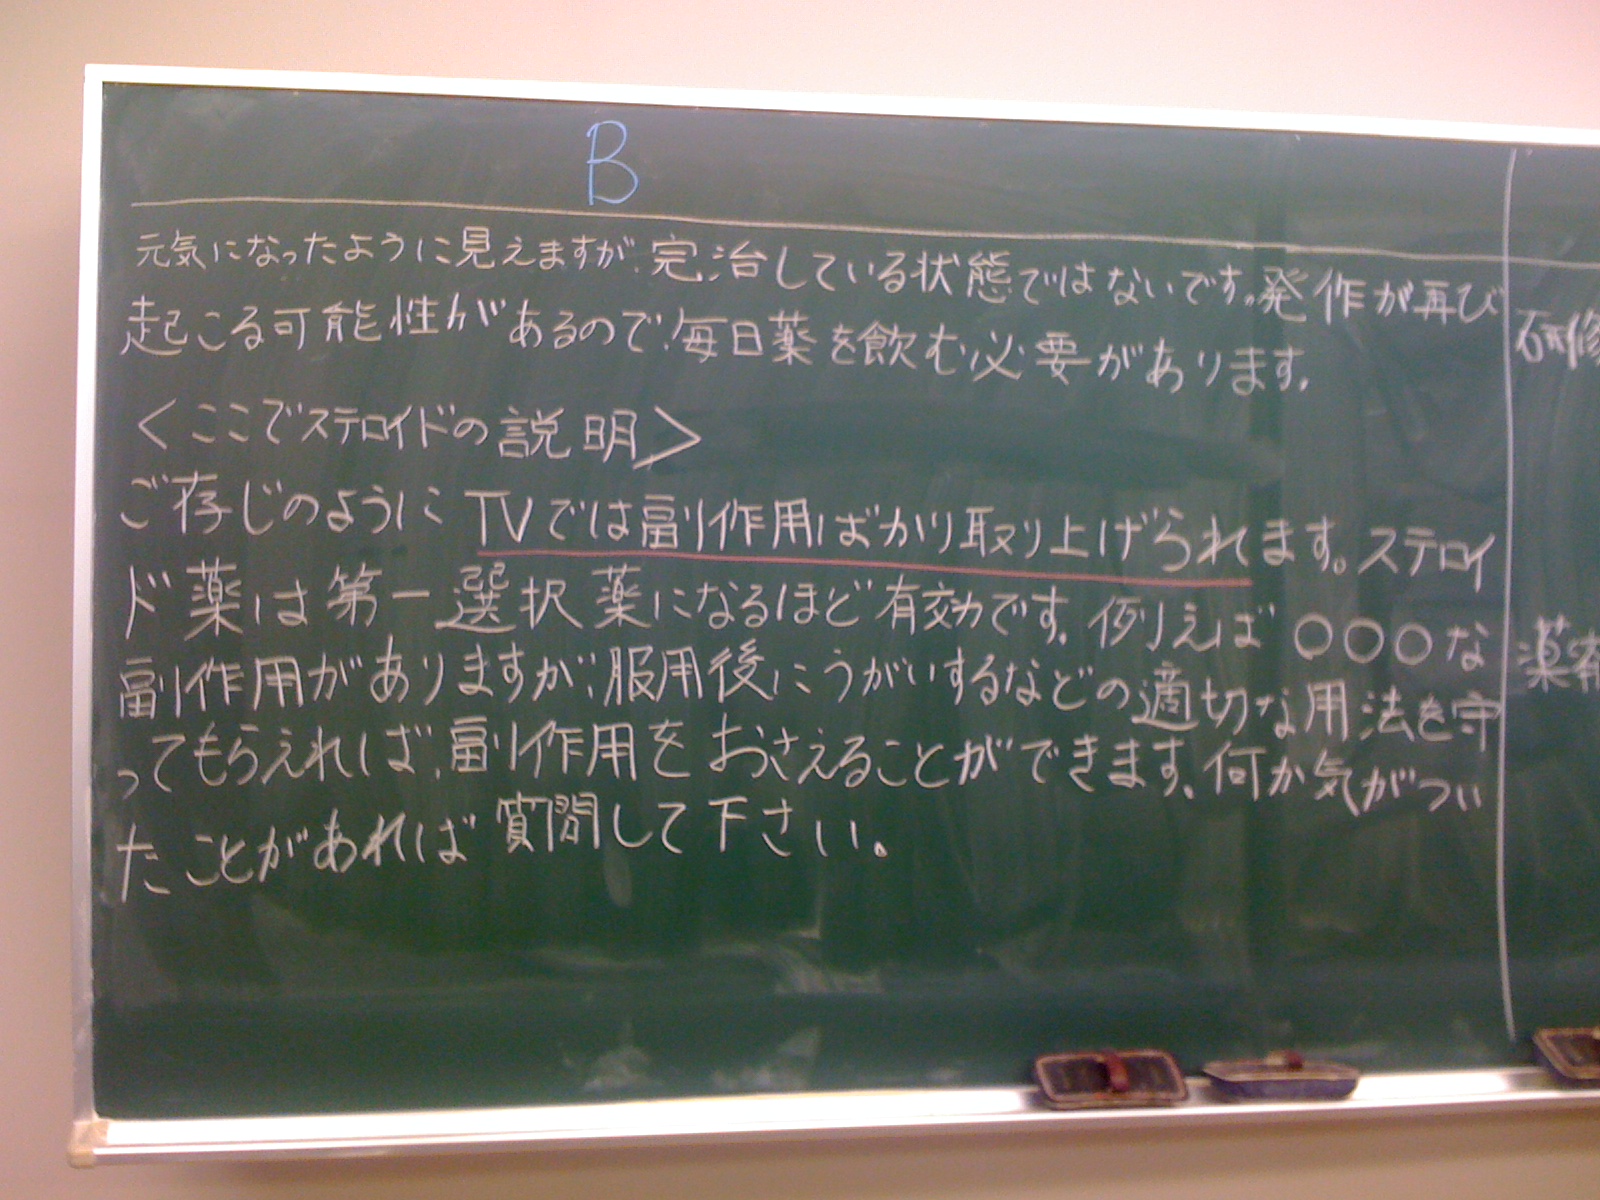 B
元気になったように見えますが、完治している状態ではないです。発作が再び
起こる可能性があるので、毎日薬を飲む必要があります。
<ここでステロイドの説明>
ご存じのようにTVでは副作用ばかり取り上げられます。ステロイ
ド薬は第一選択薬になるほど有効です。例えば○○○な
副作用がありますが、服用後にうがいするなどの適切な用法を守
ってもらえれば、副作用をおさえることができます。何か気がつい
たことがあれば質問して下さい。
研修
薬